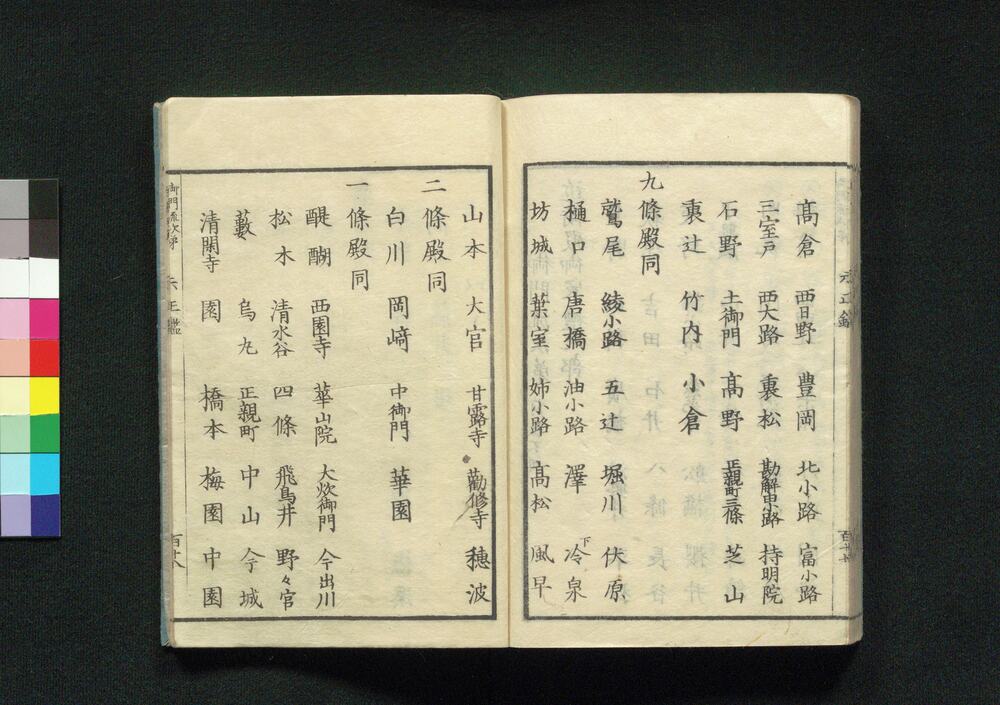 髙倉 西日野 豊岡 北小路 富小路
三室戸 西大路 裏松 勘解由小路 持明院
石野 土御門 髙野 正親町三條 芝山
裏辻 竹内 小倉
九條殿同
鷲尾 綾小路 五辻 堀川 伏原
樋口 唐橋 油小路 澤 下冷泉
坊城 葉室 姉小路 髙松 風早
山本 大宮 甘露寺 勸修寺 穗波
二條殿同
白川 岡﨑 中御門 華園
一條殿同
醍醐 西園寺 華山院 大炊御門 今出川
松木 清水谷 四條 飛鳥井 野々宮
藪 烏丸 正親町 中山 今城
清閑寺 園 橋本 梅園 中園
御門流次第
百十八